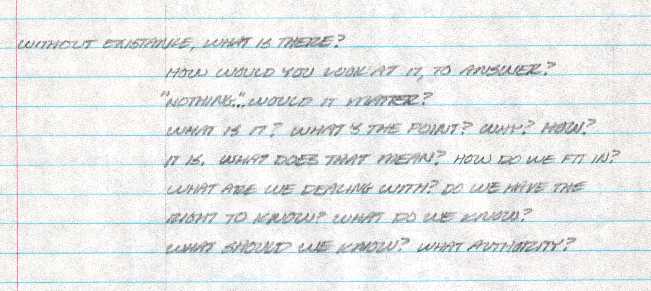 WITHOUT EXISTANCE, WHAT IS THERE?
HOW WOULD YOU LOOK AT IT, TO ANSWER?
"NOTHING." WOULD IT MATTER?
WHAT IS IT? WHAT'S THE POINT? WHY? HOW?
IT IS. WHAT DOES THAT MEAN? HOW DO WE FIT IN?
WHAT ARE WE DEALING WITH? DO WE HAVE THE
RIGHT TO KNOW? WHAT DO WE KNOW?
WHAT SHOULD WE KNOW? WHAT AUTHORITY?